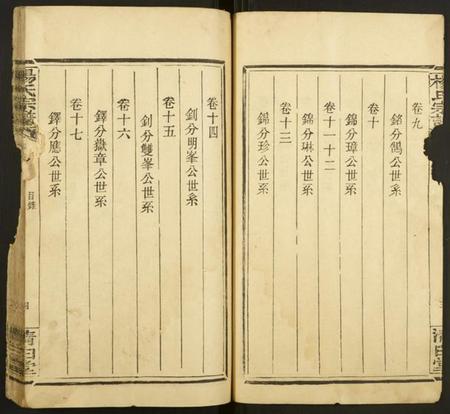 卷九
銘分鶴公世系
卷十
錦分璋公世系
卷十一十二
錦分琳公世系
卷十三
錫分珍公世系
卷十四
釗分明峯公世系
卷十五
釗分雙峯公世系
卷十六
鐸分嶽章公世系
卷十七
鐸分應公世系
楊氏宗譜
目錄
四
清白堂
楊氏宗譜
清白堂